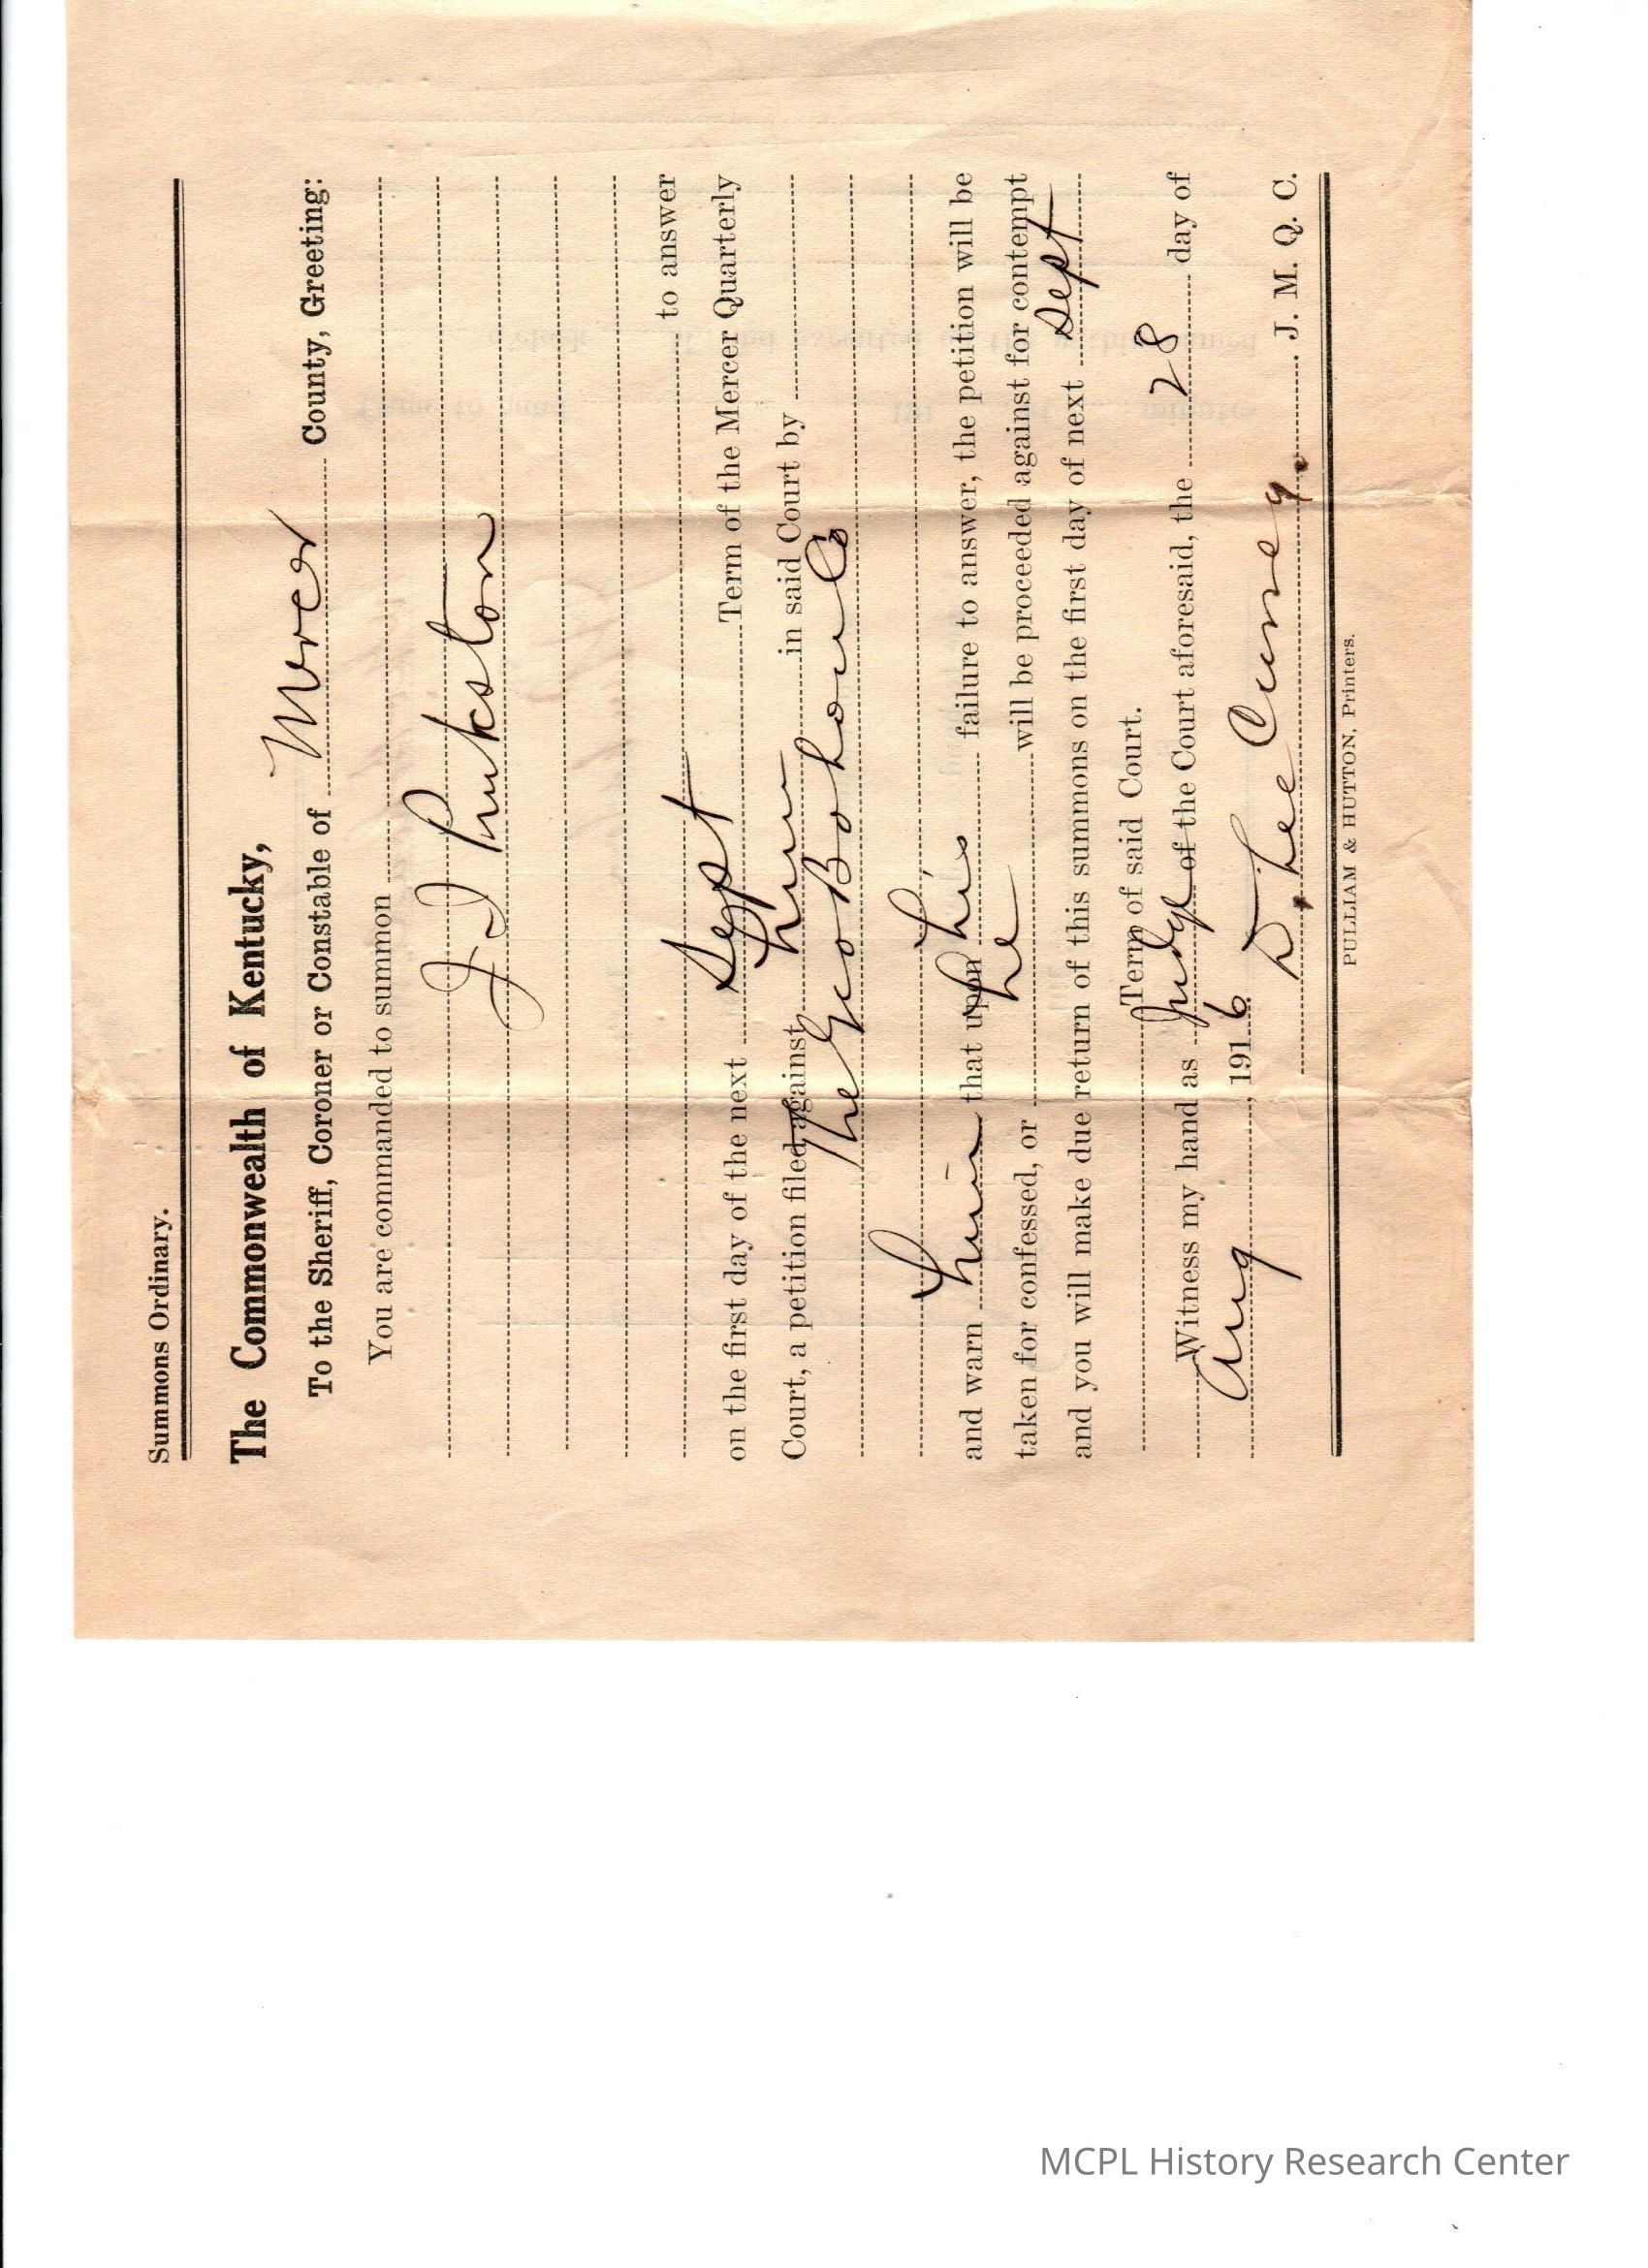 Summons Ordinary.
The Commonwealth of Kentucky,
To the Sheriff, Coroner or Constable of Mercer County, Greeting:
You are commanded to summon
J I Pinkston
to answer
on the first day of the next Sept Term of the Mercer Quarterly
Court, a petition filed against him in said Court by
The Geo Bohon Co
and warn him that upon his failure to answer, the petition will be
taken for confessed, or he will be proceeded against for contempt
and you will make due return of this summons on the first day of next Sept
Term of said Court.
Witness my hand as Judge of the Court aforesaid, the 28 day of
Aug, 1916.
Lee J. M. Q. C.
PULLIAM & HUTTON, Printers.
MCPL History Research Center